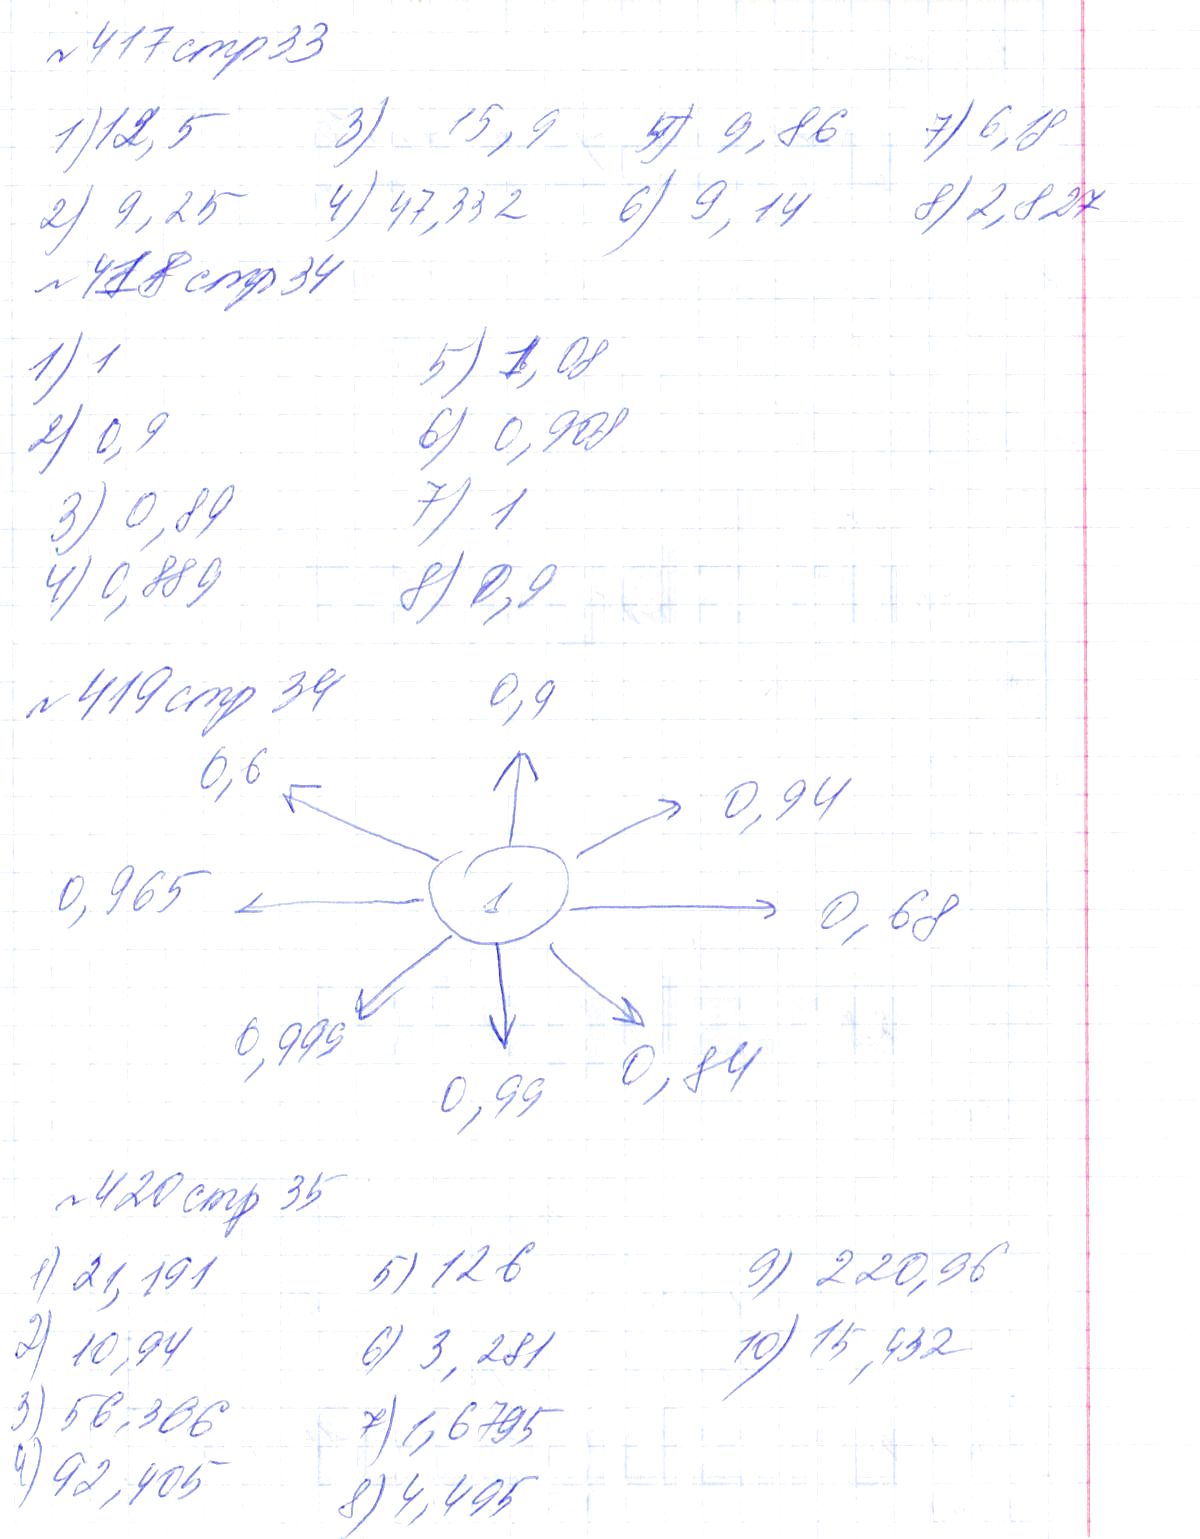 №417 стр 33
1) 12,5 3) 15,9 5) 9,86 7) 6,18
2) 9,25 4) 47,332 6) 9,14 8) 2,827
№418 стр 34
1) 1 5) 1,08
2) 0,9 6) 0,908
3) 0,89 7) 1
4) 0,889 8) 0,9
№419 стр 34
0,9
0,6
0,94
0,965
1
0,68
0,999
0,99
0,84
№420 стр 35
1) 21,191 5) 126 9) 220,96
2) 10,94 6) 3,281 10) 15,432
3) 56,306 7) 1,6795
4) 92,405 8) 4,495